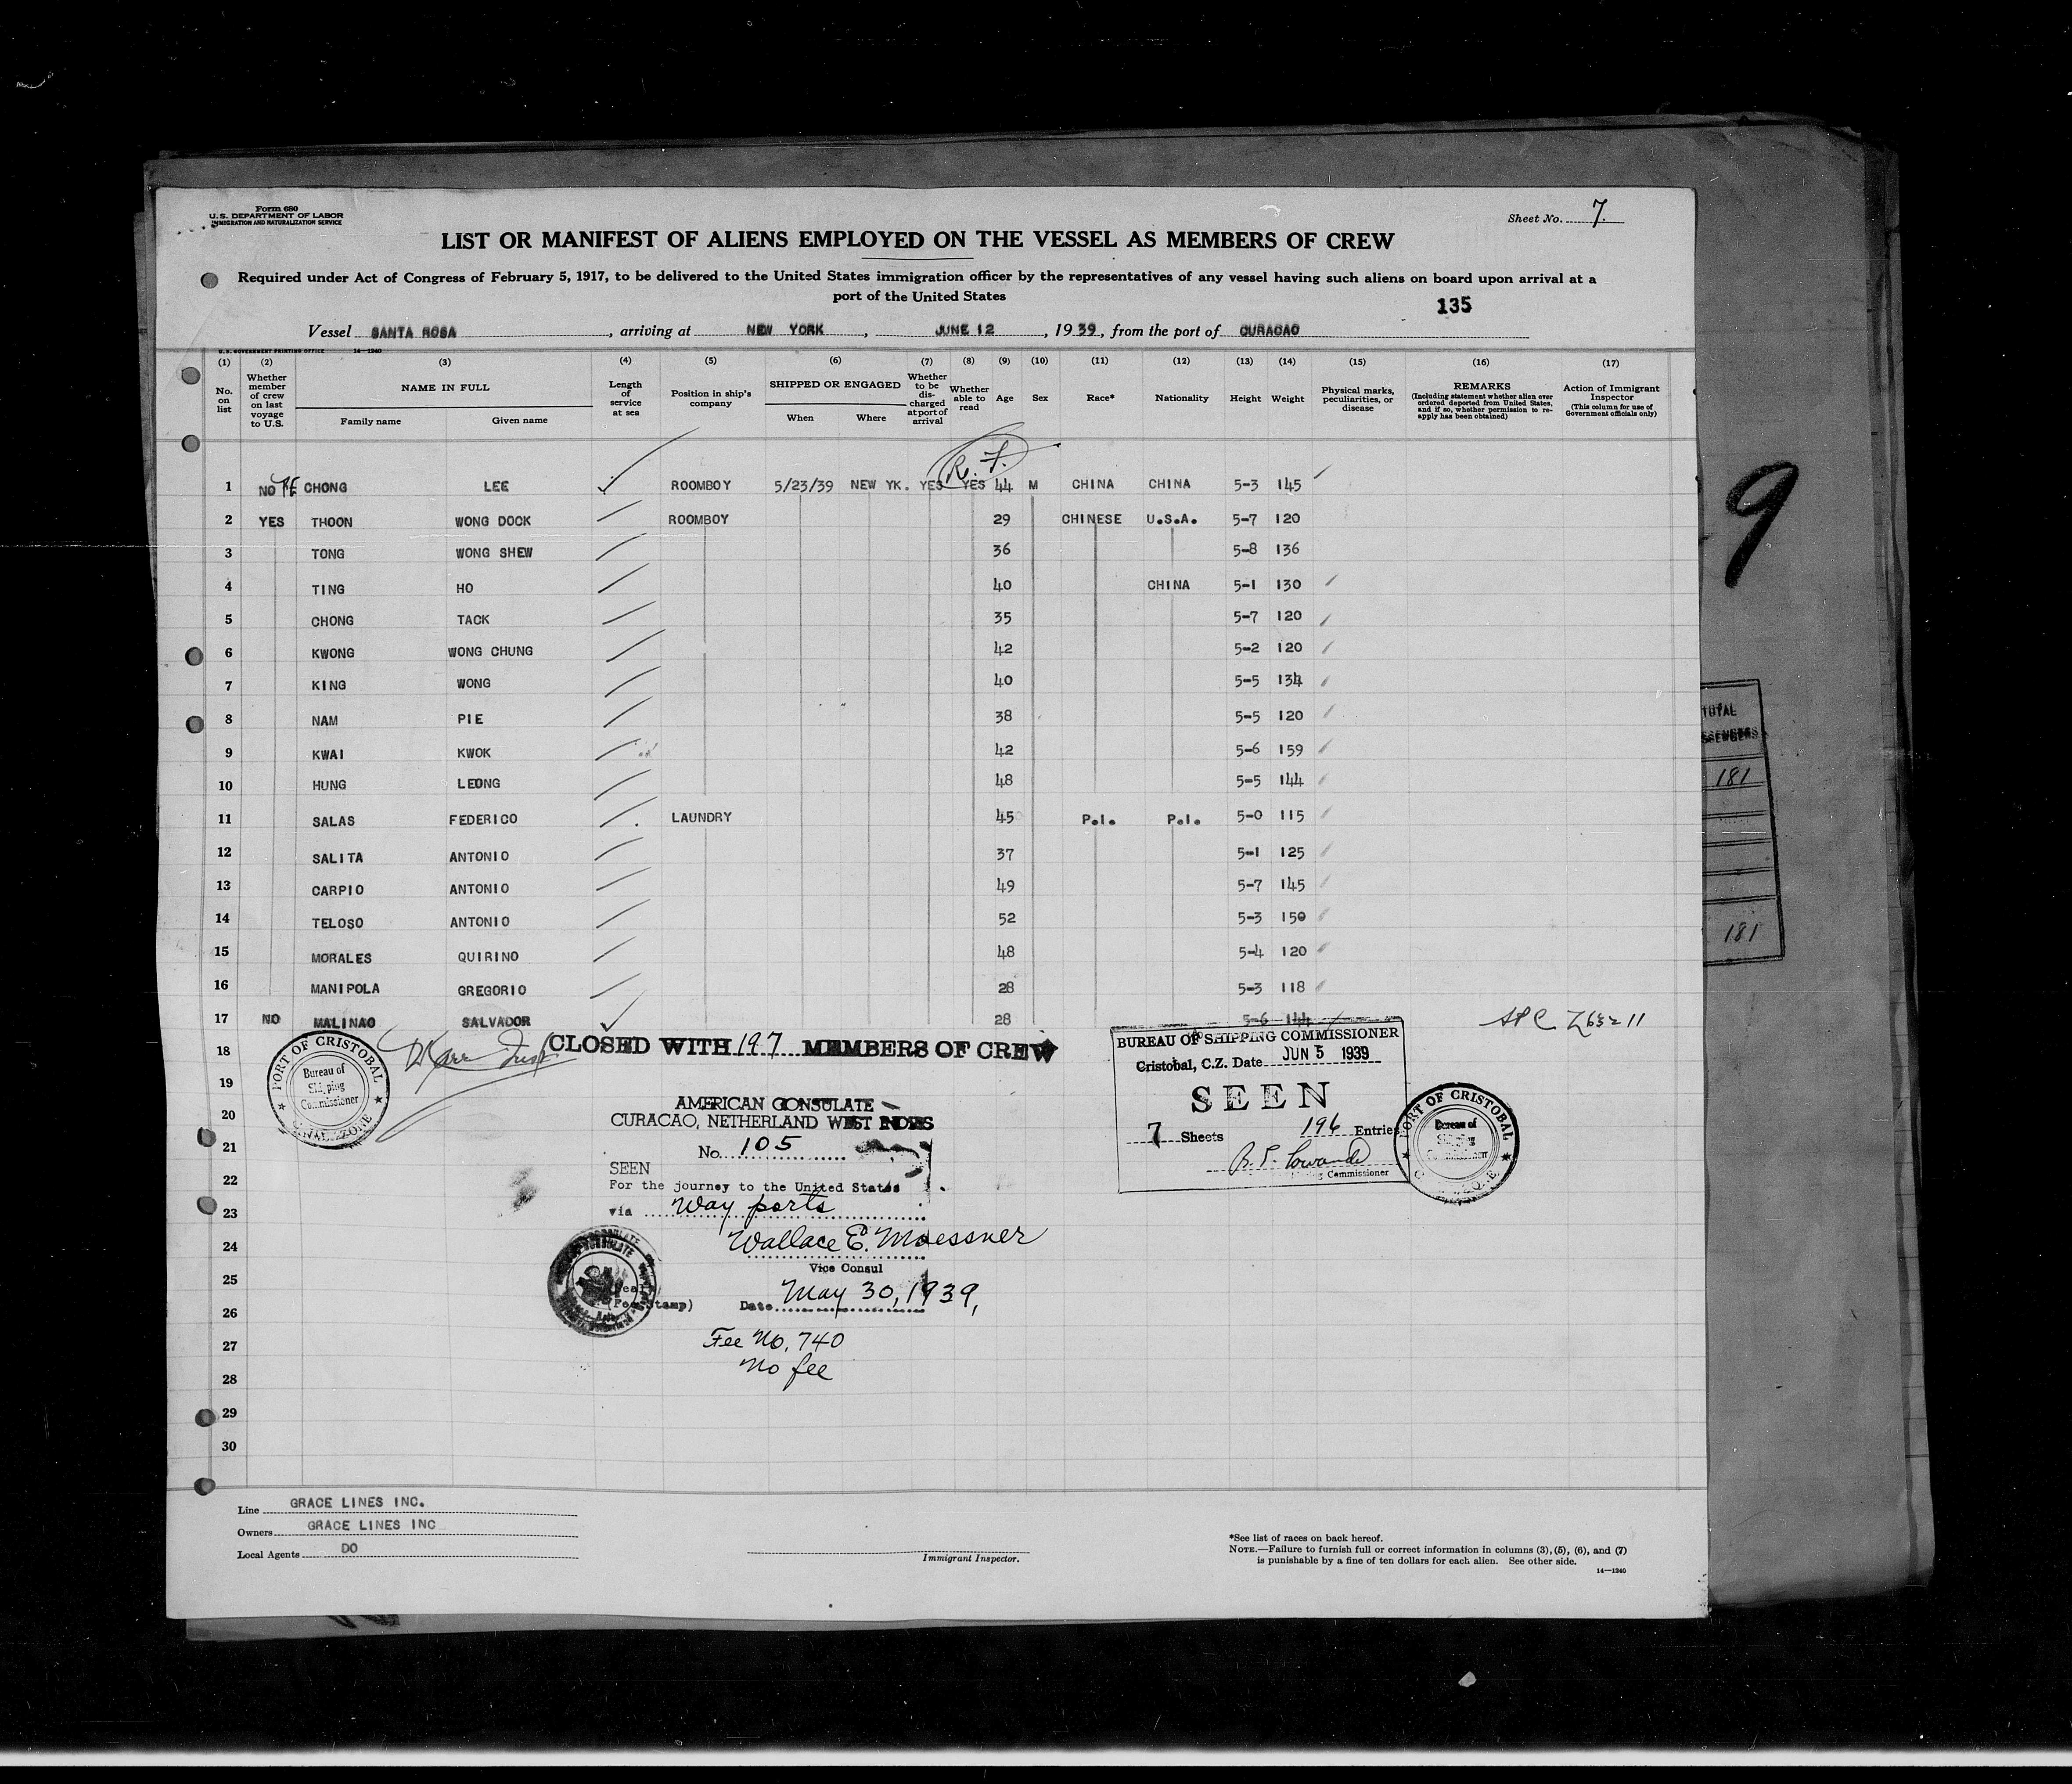 Form 680
U.S. DEPARTMENT OF LABOR
IMMIGRATION AND NATURALIZATION SERVICE
Sheet No. 7.
LIST OR MANIFEST OF ALIENS EMPLOYED ON THE VESSEL AS MEMBERS OF CREW
Required under Act of Congress of February 5, 1917, to be delivered to the United States immigration officer by the representatives of any vessel having such aliens on board upon arrival at a
port of the United States
135
Vessel SANTA ROSA, arriving at NEW YORK, JUNE 12, 1939, from the port of CURACAO
U.S. GOVERNMENT PRINTING OFFICE 14—1240
(1) (2) (3) (4) (5) (6) (7) (8) (9) (10) (11) (12) (13) (14) (15) (16) (17)
No. on list
Whether member of crew on last voyage to U.S.
NAME IN FULL
Family name
Given name
Length of service at sea
Position in ship's company
SHIPPED OR ENGAGED
When
Where
Whether to be discharged at port of arrival
Whether able to read
Age
Sex
Race*
Nationality
Height
Weight
Physical marks, peculiarities, or disease
REMARKS
(Including statement whether alien ever ordered deported from United States, and if so, whether permission to reapply has been obtained)
Action of Immigrant Inspector
(This column for use of Government officials only)
R. F.
1 NO CHONG LEE ROOMBOY 5/23/39 NEW YK. YES YES 44 M CHINA CHINA 5-3 145
2 YES THOON WONG DOCK ROOMBOY 29 CHINESE U.S.A. 5-7 120
3 TONG WONG SHEW 36 5-8 136
4 TING HO 40 CHINA 5-1 130
5 CHONG TACK 35 5-7 120
6 KWONG WONG CHUNG 42 5-2 120
7 KING WONG 40 5-5 134
8 NAM PIE 38 5-5 120
9 KWAI KWOK 42 5-6 159
10 HUNG LEONG 48 5-5 144
11 SALAS FEDERICO LAUNDRY 45 P.I. P.I. 5-0 115
12 SALITA ANTONIO 37 5-1 125
13 CARPIO ANTONIO 49 5-7 145
14 TELOSO ANTONIO 52 5-3 150
15 MORALES QUIRINO 48 5-4 120
16 MANIPOLA GREGORIO 28 5-3 118
17 NO MALINAO SALVADOR 28 5-6 144
18
19
20
21
22
23
24
25
26
27
28
29
30
PORT OF CRISTOBAL
Bureau of Shipping Commissioner
CANAL ZONE
CLOSED WITH 197 MEMBERS OF CREW
AMERICAN CONSULATE
CURACAO, NETHERLAND WEST INDIES
No. 105
SEEN
For the journey to the United States
via Way ports
Wallace E. Moessner
Vice Consul
Date May 30, 1939,
Fee No. 740
No fee
BUREAU OF SHIPPING COMMISSIONER
Cristobal, C.Z. Date JUN 5 1939
SEEN
7 Sheets 196 Entries
Commissioner
PORT OF CRISTOBAL
Bureau of Shipping Commissioner
9
TOTAL
181
181
Line GRACE LINES INC.
Owners GRACE LINES INC
Local Agents DO
Immigrant Inspector.
*See list of races on back hereof.
NOTE.—Failure to furnish full or correct information in columns (3), (5), (6), and (7)
is punishable by a fine of ten dollars for each alien. See other side.
14—1240